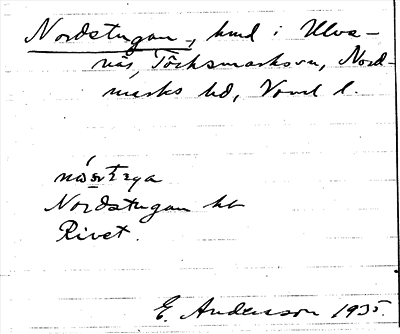 Nordstugan, hmd i Ulvs-
näs, Töcksmarks sn, Nord-
marks hd, Vrml l.
Nordstugan kt
Rivet.
E. Andersson 1935.